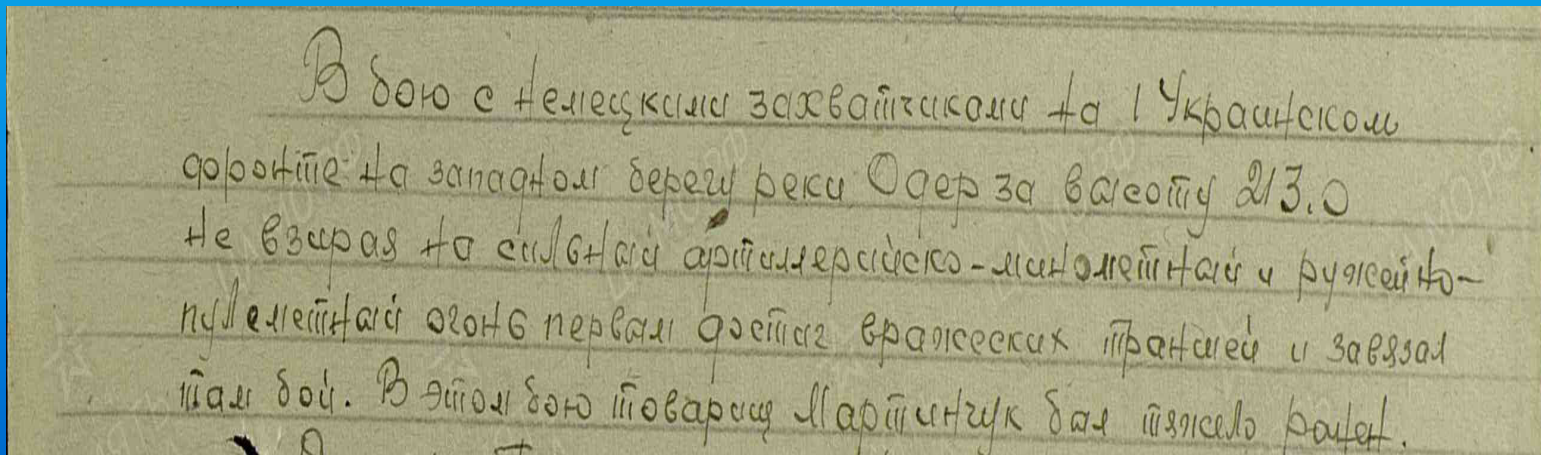 В бою с немецкими захватчиками на 1 Украинском
фронте на западном берегу реки Одер за высоту 213.0
не взирая на сильный артиллерийско-минометный и ружейно-
пулеметный огонь первым достиг вражеских траншей и завязал
там бой. В этом бою товарищ Мартинчук был тяжело ранен.